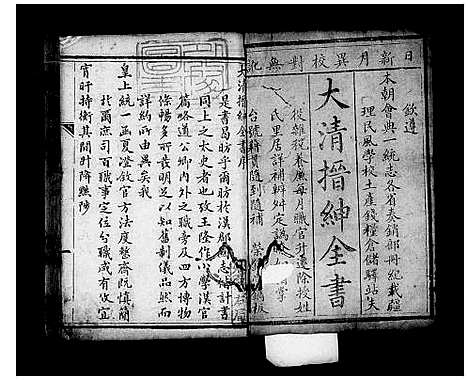 日新月異校對無訛
欽遵
本朝會典一統志各省奏銷部冊紀載疆
理民風學校土產錢糧倉儲驛站失
大清搢紳全書
從雜稅養廉每月職官升遷除授姓
氏里居詳補辨舛定譌
台號籍貫隨到隨補 榮
大清搢紳全書序
是書昌昉乎爾昉於漢郡國志上計書
同上之太史者也攷王隆作小學漢官
篇略道公卿內外之職旁及四方博物
條暢多所發明足以知舊制儀品然而
詳約所由異矣我
皇上統一函夏澄敘官方法度整齊既慎簡
乃僚而百司職事定位分職咸有攸宜
宵旰持衡其間升降黜陟